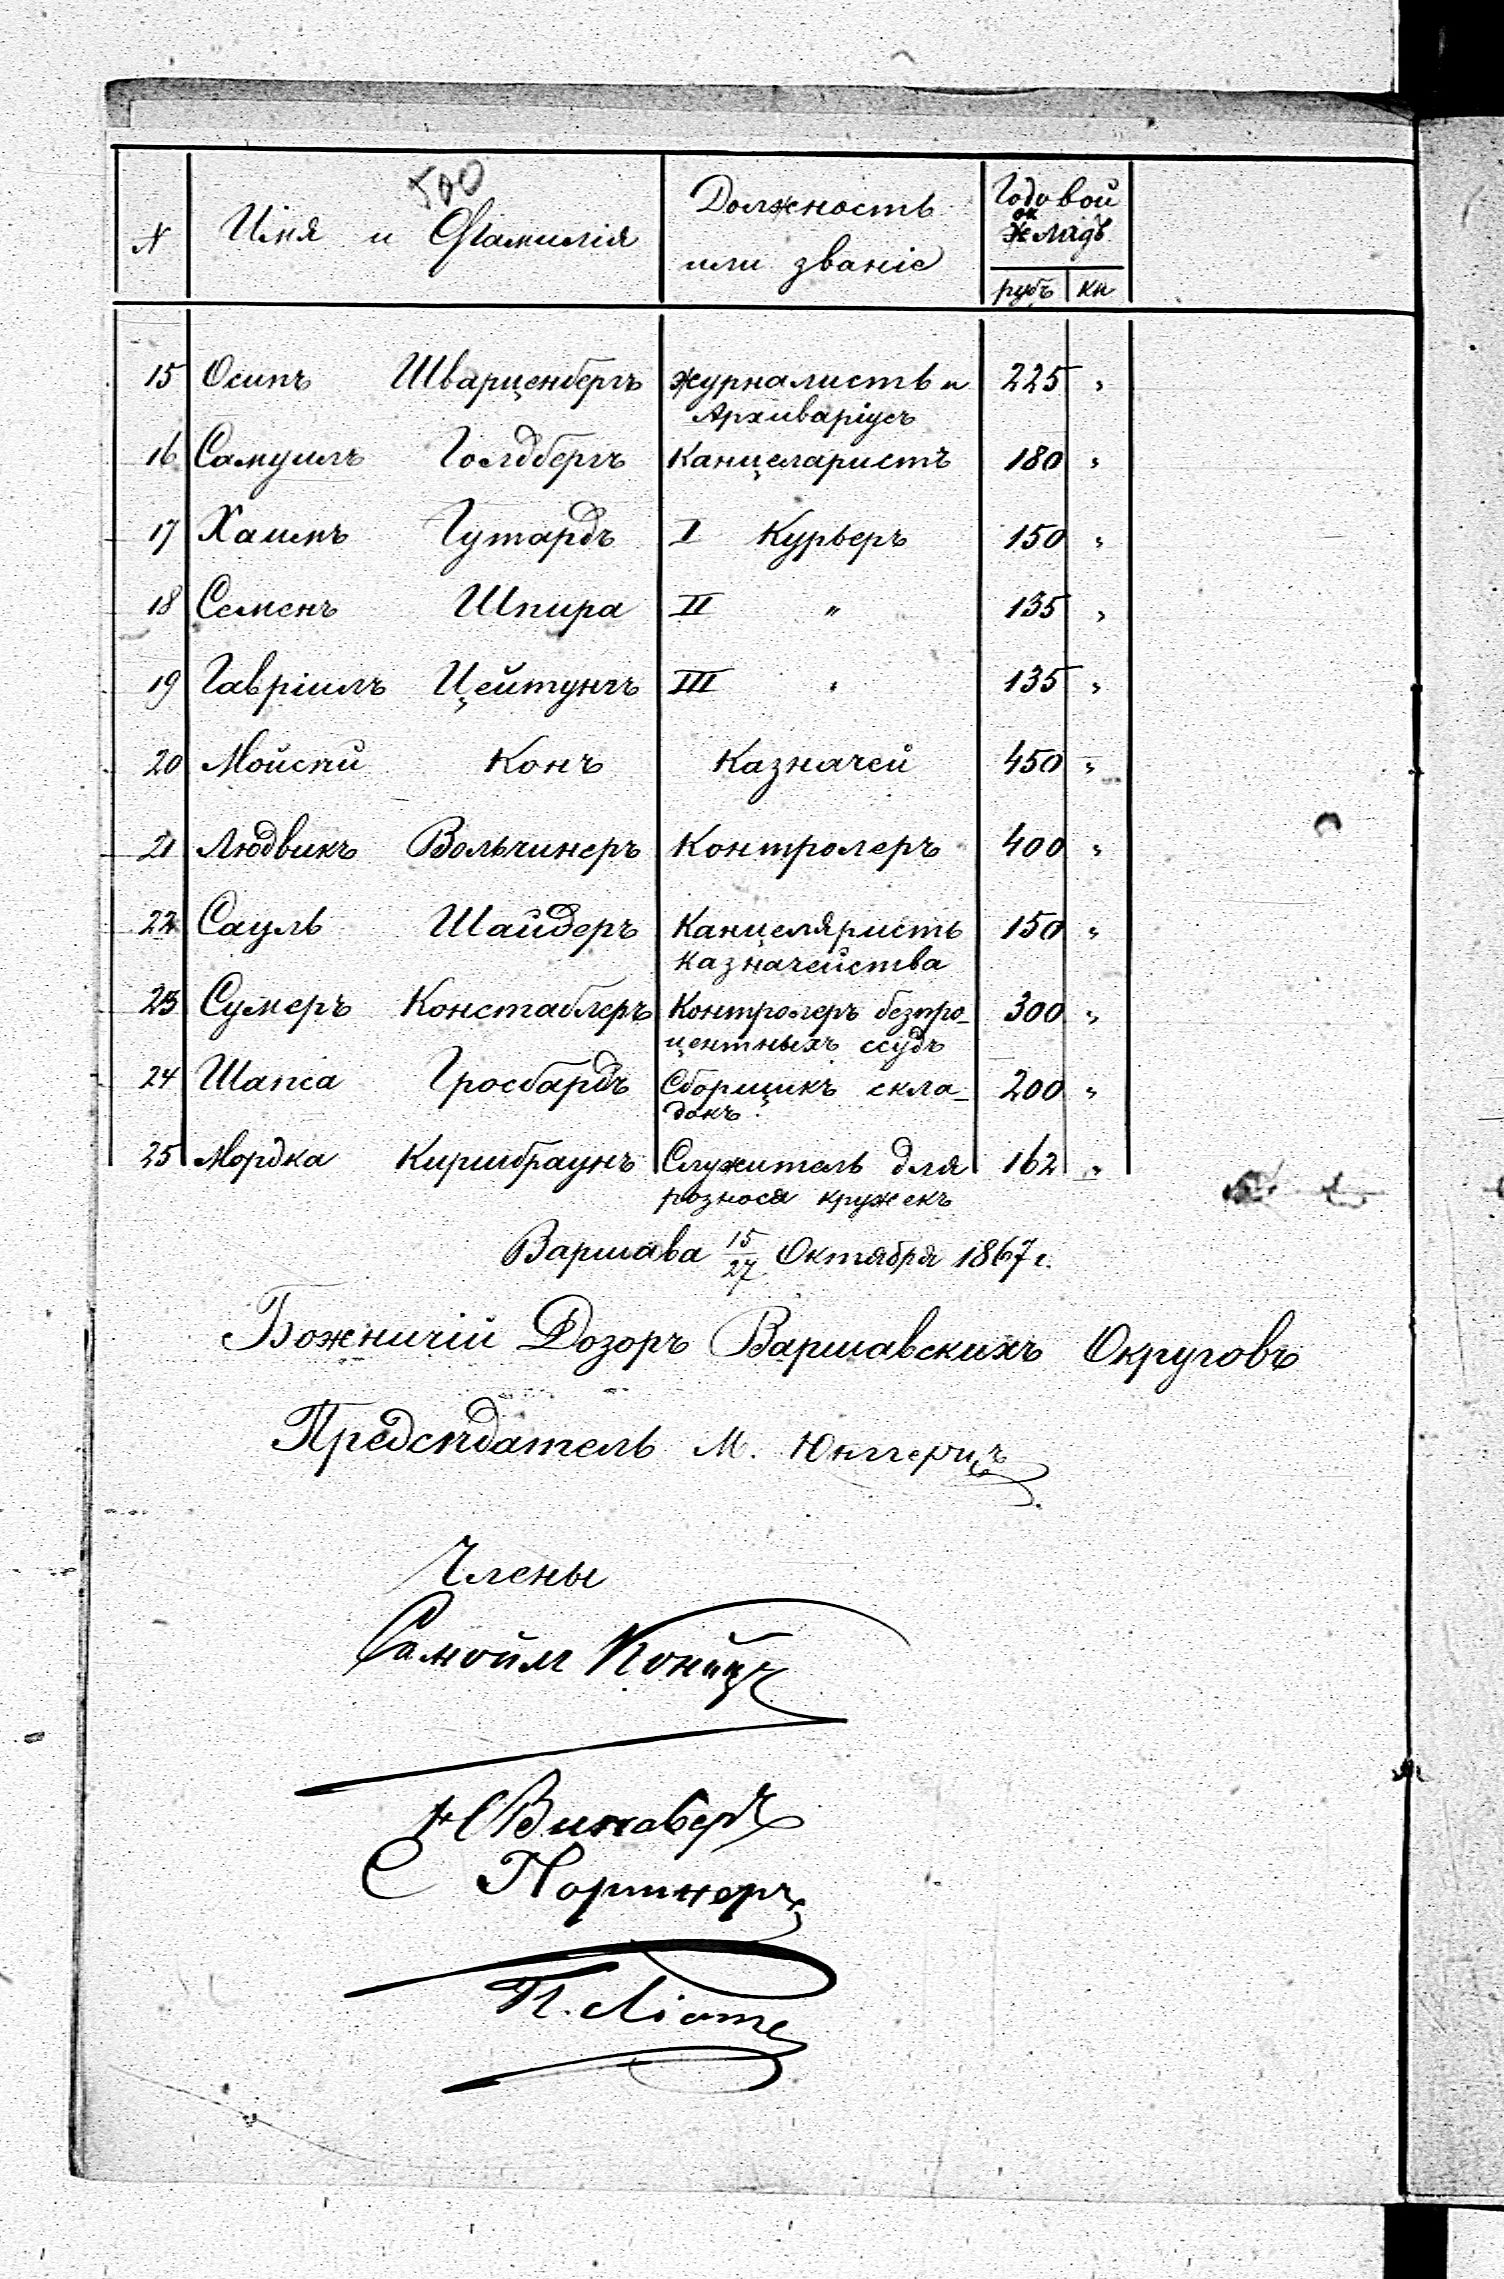 500
N Имя и Фамилія Должность или званіе Годовой окладъ
рубъ кп
15 Осипъ Шварценбергъ журналистъ и 225 "
Архиваріусъ
16 Самуилъ Голдбергъ Канцеларистъ 180 "
17 Хаимъ Гутардъ I Курьеръ 150 "
18 Семенъ Шпира II " 135 "
19 Гавріилъ Цейтунгъ III " 135 "
20 Мойсѣй Конъ Казначей 450 "
21 Людвикъ Вольчинеръ Контролеръ 400 "
22 Сауль Шайдеръ Канцеляристъ 150 "
казначейства
23 Сумеръ Констаблеръ Контролеръ безпро- 300 "
центныхъ ссудъ
24 Шапса Гросбардъ Сборщикъ скла- 200 "
докъ
25 Мордка Киршбраунъ Служитель для 162 "
розноса кружекъ
Варшава 15/27 Октября 1867 г.
Божничій Дозоръ Варшавскихъ Округовъ
Предсѣдатель М. Юнгерицъ
Члены
Самойл Коницъ
Винаверъ
С Портнеръ